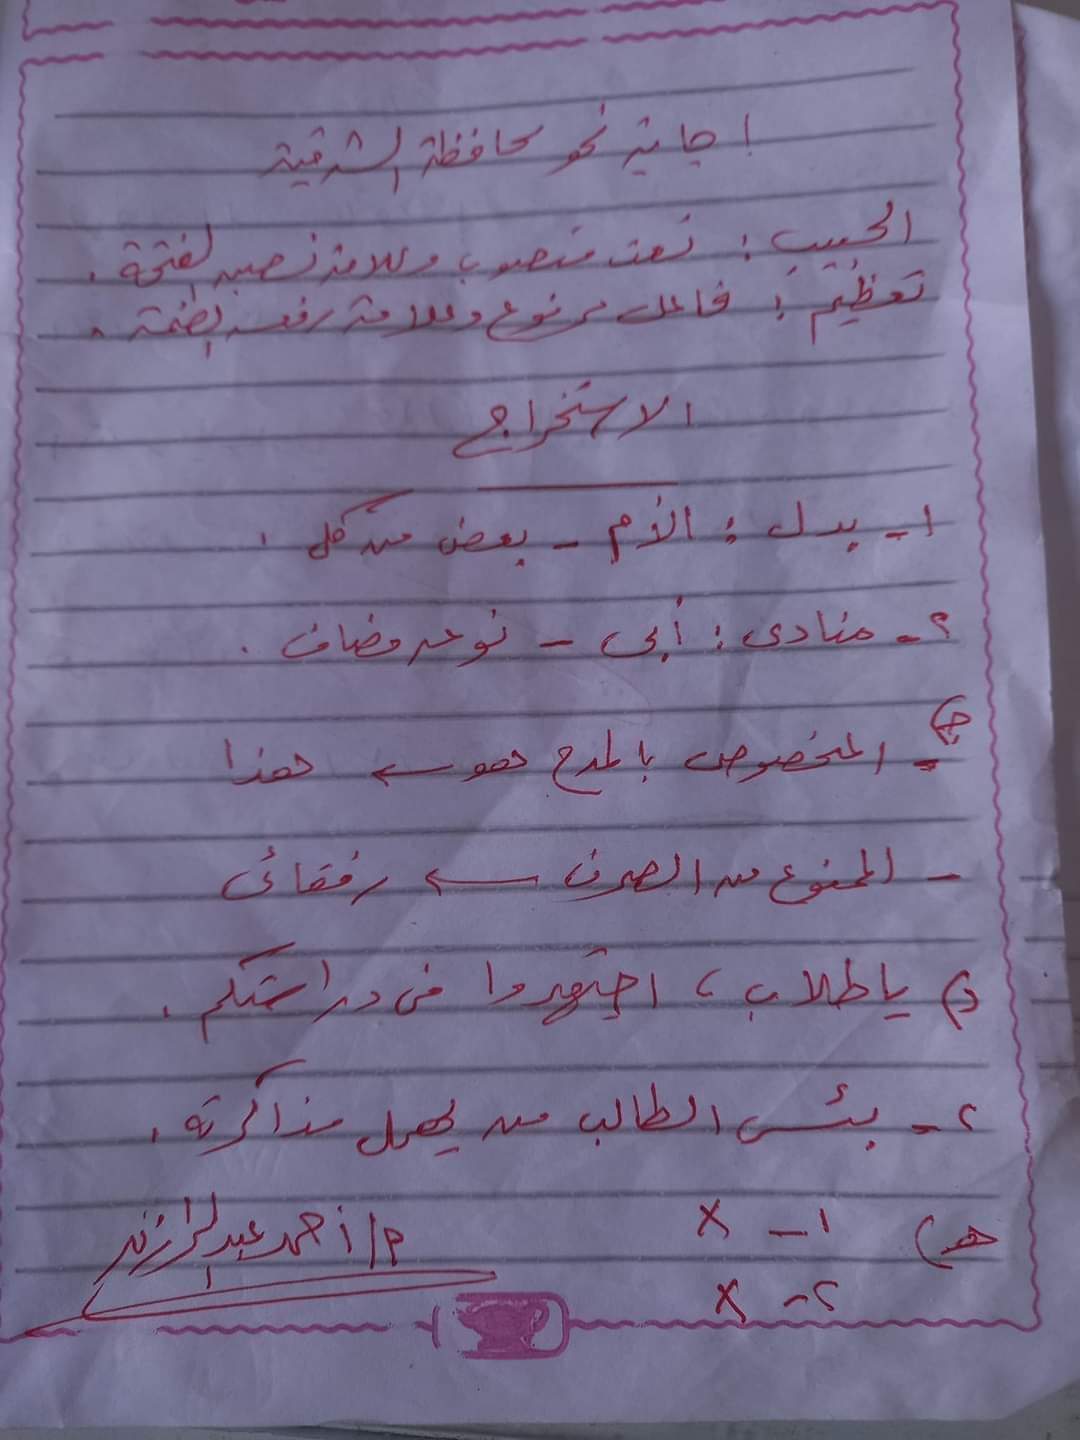 إجابة نحو محافظة الشرقية
الحبيبَ : نعت منصوب وعلامة نصبه الفتحة .
تعظيمُ : فاعل مرفوع وعلامة رفعه الضمة .
الاستخراج
١- بدل : الأم - بعض من كل .
٢- منادى : أبى - نوعه مضاف .
ج)
- المخصوص بالمدح هو ← هذا
- الممنوع من الصرف ← رفقائى
د) يا طلاب ، اجتهدوا فى دراستكم .
٢- بئس الطالب من يهمل مذاكرته .
هـ) ١- X
٢- X
م/ أحمد عبد الرازق